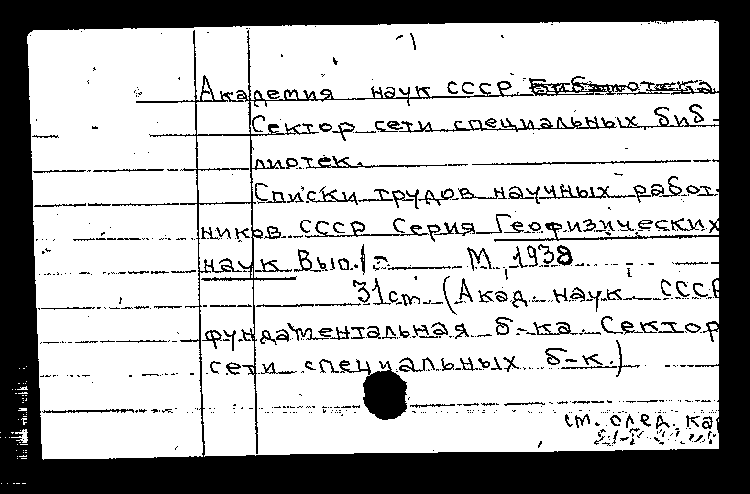 Академия наук СССР Библиотека
Сектор сети специальных биб-
лиотек.
Списки трудов научных работ-
ников СССР Серия Геофизических
наук Вып. 1- М 1938
31 см. (Акад. наук СССР
фундаментальная б-ка Сектор
сети специальных б-к.)
см. след. кар